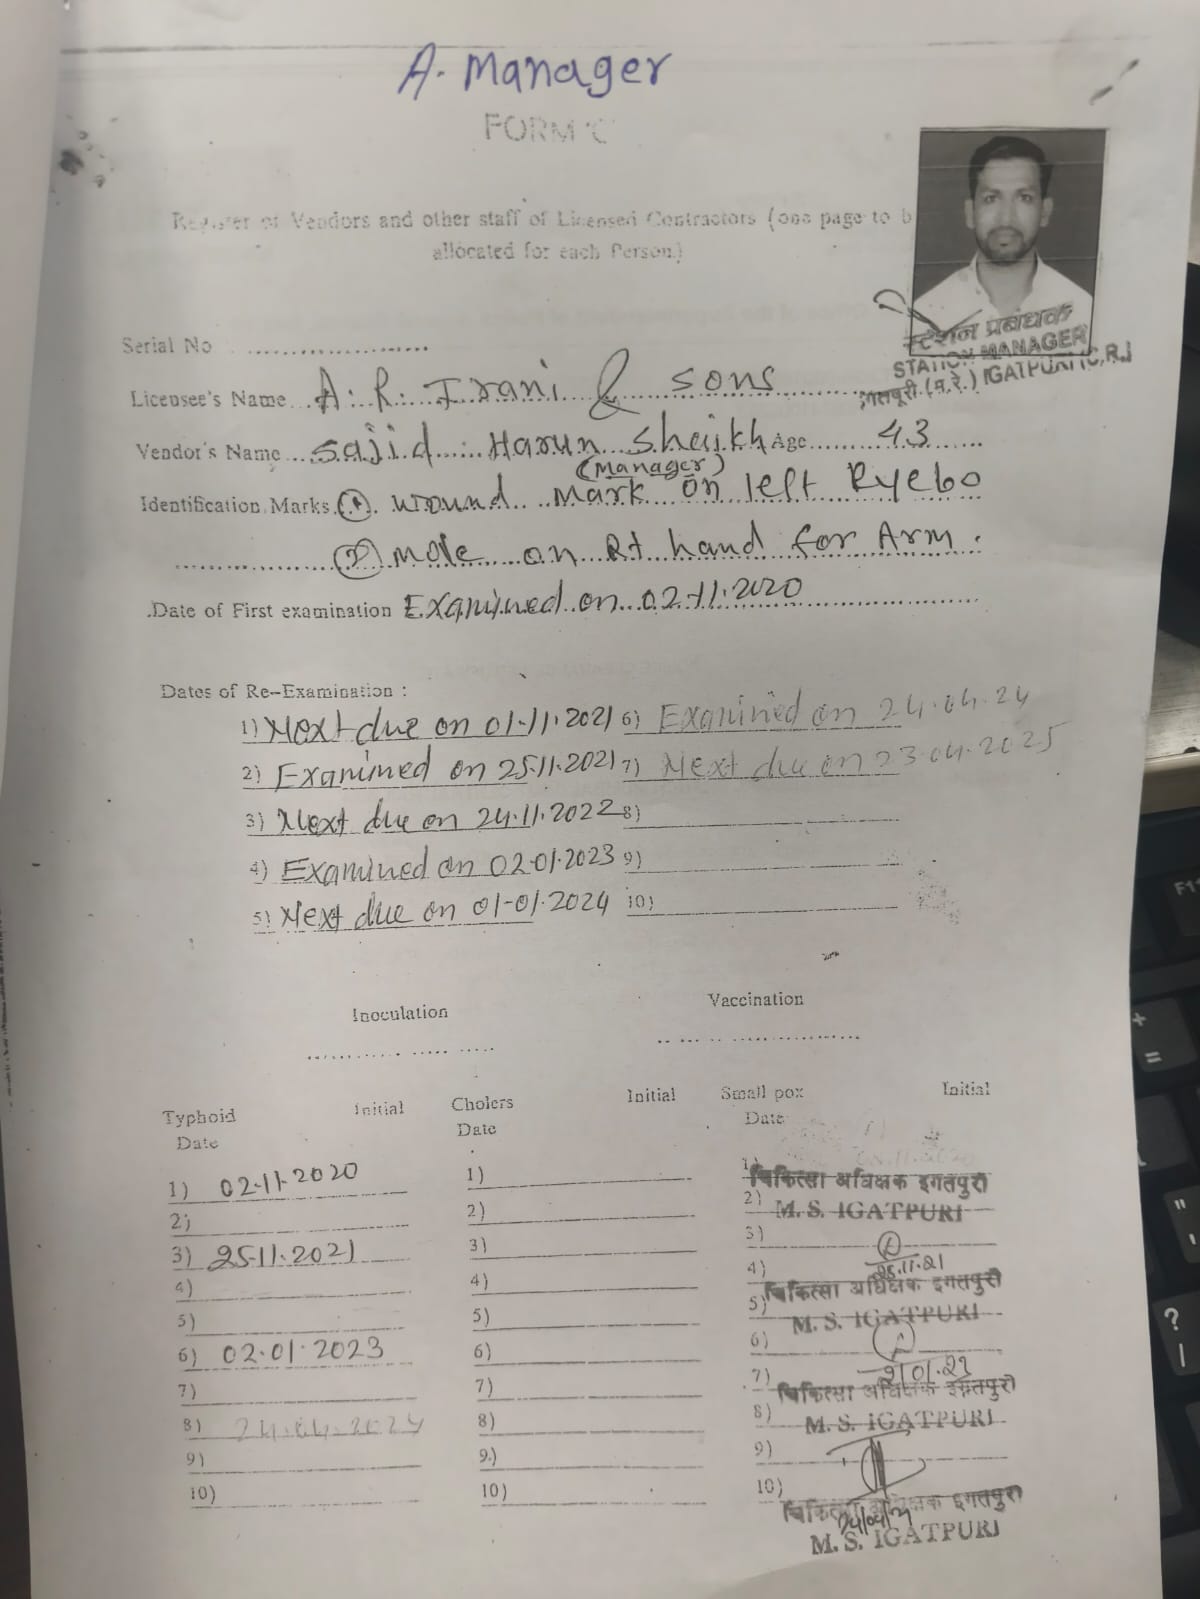 A. Manager
FORM 'C'
Register of Vendors and other staff of Licensed Contractors (one page to b
allocated for each Person.)
स्टेशन प्रबंधक
STATION MANAGER
इगतपूरी (म.रे.) IGATPURI (C.R.)
Serial No ....................
Licensee's Name A. R. Irani & sons
Vendor's Name Sajid Harun Sheikh Age 43
(Manager)
Identification Marks (1) wound Mark on left Eyebo
(2) mole on Rt hand for Arm.
Date of First examination Examined on 02.11.2020
Dates of Re-Examination :
1) Next due on 01.11.2021 6) Examined on 24.04.24
2) Examined on 25.11.2021 7) Next due on 23.04.2025
3) Next due on 24.11.2022 8)
4) Examined on 02.01.2023 9)
5) Next due on 01-01.2024 10)
Inoculation Vaccination
Typhoid Initial Cholers Initial Small pox Initial
Date Date Date
1) 02.11.2020 1) 1)
चिकित्सा अधिक्षक इगतपुरी
2) 2) 2) M. S. IGATPURI
3) 25.11.2021 3) 3)
4) 4) 4) 25.11.21
चिकित्सा अधिक्षक इगतपुरी
5) 5) 5) M. S. IGATPURI
6) 02.01.2023 6) 6)
7) 7) 7) 2/01.23
चिकित्सा अधिक्षक इगतपुरी
8) 24.04.2024 8) 8) M. S. IGATPURI
9) 9.) 9)
10) 10) 10)
चिकित्सा अधिक्षक इगतपुरी
24/04/24
M. S. IGATPURI